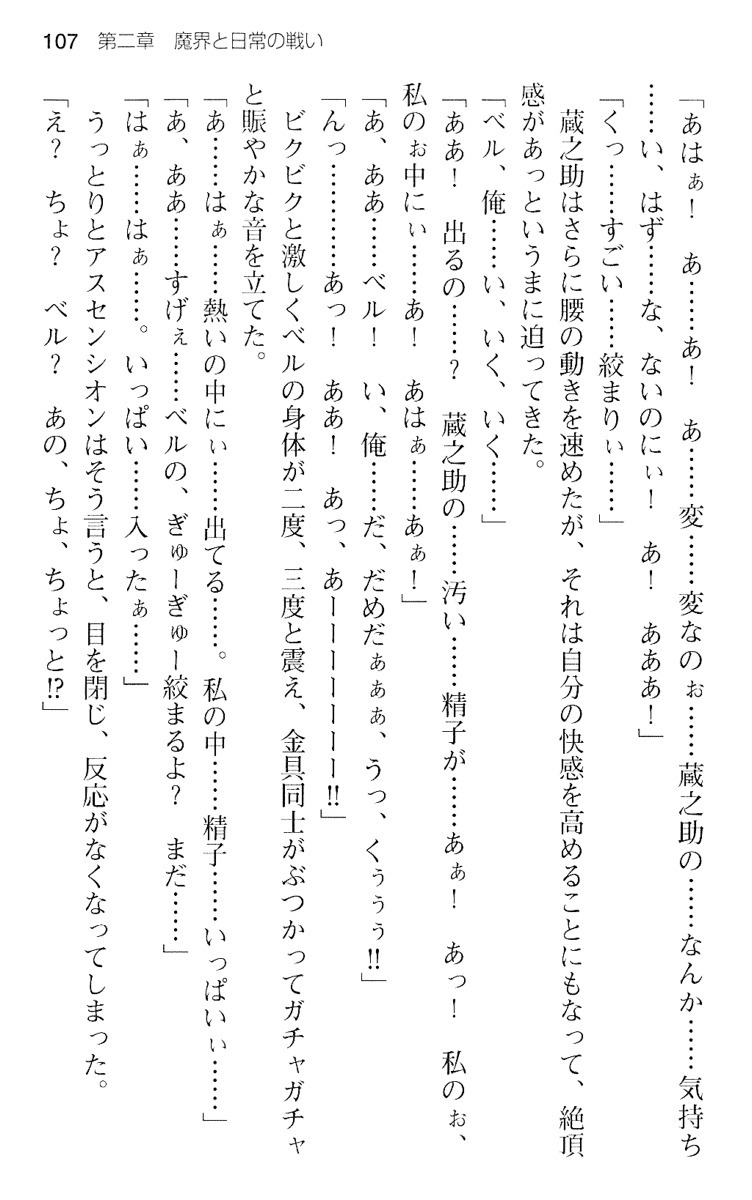 107 第二章 魔界と日常の戦い
「あはぁ！ あ……あ！ あ……変……変なのぉ……蔵之助の……なんか……気持ち
……い、はず……な、ないのにぃ！ あ！ あああ！」
「くっ……すごい……絞まりぃ……」
蔵之助はさらに腰の動きを速めたが、それは自分の快感を高めることにもなって、絶頂
感があっというまに迫ってきた。
「ベル、俺……い、いく、いく……」
「ああ！ 出るの……？ 蔵之助の……汚い……精子が……あぁ！ あっ！ 私のぉ、
私のぉ中にぃ……あ！ あはぁ……あぁ！」
「あ、ああ……ベル！ い、俺……だ、だめだぁぁぁ、うっ、くぅぅぅ!!」
「んっ…………あっ！ ああ！ あっ、あーーーーーーー!!」
ビクビクと激しくベルの身体が二度、三度と震え、金具同士がぶつかってガチャガチャ
と賑やかな音を立てた。
「あ……はぁ……熱いの中にぃ……出てる……。私の中……精子……いっぱいぃ……」
「あ、ああ……すげぇ……ベルの、ぎゅーぎゅー絞まるよ？ まだ……」
「はぁ……はぁ……。いっぱい……入ったぁ……」
うっとりとアスセンシオンはそう言うと、目を閉じ、反応がなくなってしまった。
「え？ ちょ？ ベル？ あの、ちょ、ちょっと!?」